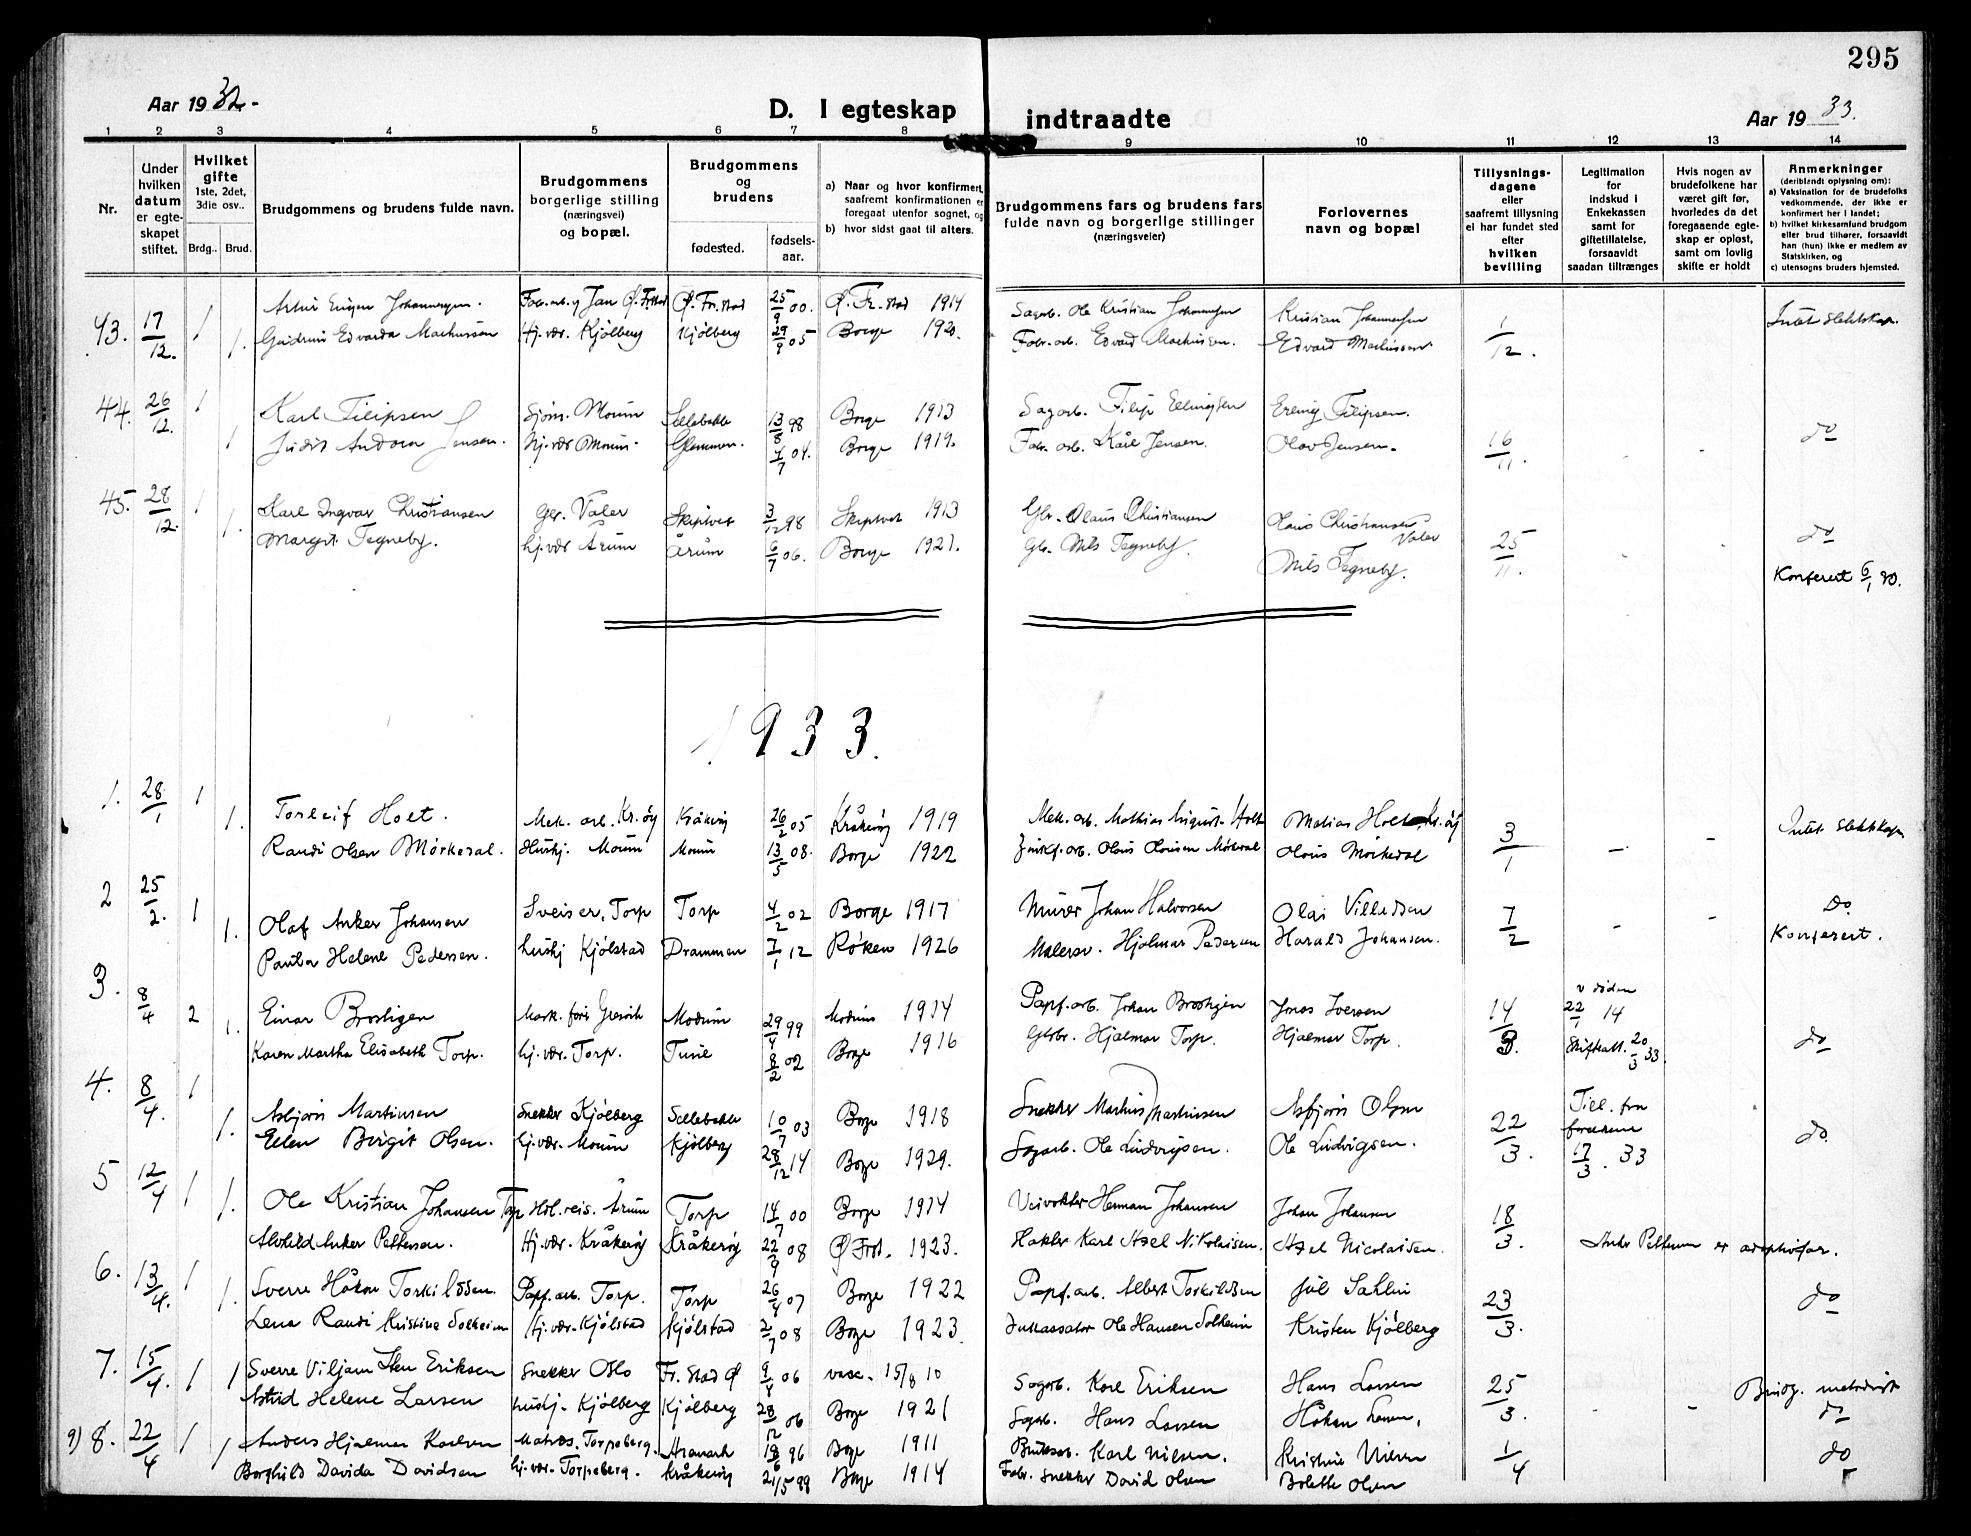 295
Aar 1932.-
D. I egteskap indtraadte
Aar 1933.
1 2 3 4 5 6 7 8 9 10 11 12 13 14
Nr.
Under hvilken datum er egteskapet stiftet.
Hvilket gifte 1ste, 2det, 3die osv..
Brdg.. Brud.
Brudgommens og brudens fulde navn.
Brudgommens borgerlige stilling (næringsvei) og bopæl.
Brudgommens og brudens
fødested. fødsels-aar.
a) Naar og hvor konfirmert, saafremt konfirmationen er foregaat utenfor sognet, og
b) hvor sidst gaat til alters.
Brudgommens fars og brudens fars fulde navn og borgerlige stillinger (næringsveier)
Forlovernes navn og bopæl
Tillysningsdagene eller saafremt tillysning ei har fundet sted efter hvilken bevilling
Legitimation for indskud i Enkekassen samt for giftetillatelse, forsaavidt saadan tiltrænges
Hvis nogen av brudefolkene har været gift før, hvorledes da det foregaaende egteskap er opløst, samt om lovlig skifte er holdt
Anmerkninger (deriblandt oplysning om):
a) Vaksination for de brudefolks vedkommende, der ikke er konfirmert her i landet;
b) hvilket kirkesamfund brudgom eller brud tilhører, forsaavidt han (hun) ikke er medlem av Statskirken, og
c) utensogns bruders hjemsted.
43. 17/12. 1 Artur Eugen Johannesen. Ø. Fr.stad 25/9 00. Ø. Fr.stad 1914 Sagarb. Ole Kristian Johannesen Kristian Johannesen 1/12. Intet slektskap.
1. Edvarda Markussen Hj. vær. Kjølberg Kjølberg 29/9 05 Borge 1920. Fabr. arb. Edvard Markussen. Edvard Markussen
44. 26/12. 1 Karl Filipsen Sjøm. Moum Sellebakk 13/8 98 Borge 1913 Sagarb. Filip Ellingsen Erling Filipsen. 16/11. - - do
1 Judit Andora Jensen. Hj. vær Moum. Glemmen. 4/7 04. Borge 1919. Fabr. arb. Kåre Jensen. Olav Jensen.
45. 28/12. 1 Karl Ingvar Christiansen Gbr. Våler Skiptvet 3/12 98 Skiptvet 1913 Gbr. Olaus Christiansen Olaus Christiansen Våler 25/11. do
1. Margit Tegneby. hj. vær Årum Årum 6/7 06. Borge 1921. Gbr. Nils Tegneby. Nils Tegneby. Konferert 6/1 30.
1933.
1. 28/1 1 Torleif Holt. Mek. arb. Kr.øy Kråkerøy 26/2 05 Kråkerøy 1919 Mek. arb. Mathias August Holt Matias Holt Kr. øy 3/1 - - Intet slektskap
1. Randi Olsen Mørkedal. Hushj. Moum Moum 13/5 08. Borge 1922 Olaus Olausen Mørkedal Olaus Mørkedal
2 25/2. 1 Olaf Anker Johansen Sveiser, Torp Torp 4/2 02 Borge 1917 Murer Johan Halvorsen Olai Villadsen 7/2 - - Do.
1. Paula Helene Pedersen. hushj Kjølstad Drammen 7/1 12 Røken 1926 Malersv. Hjalmar Pedersen Harald Johansen. Konferert.
3. 8/4 2 Einar Modum 29/4 99 Modum 1914 Papf. arb. Johan Jonas Iversen 14/3. v døden 22/1 14
1. Karen Martha Elisabeth Torp. hj. vær. Torp. Tune 8/2 02 Borge 1916 Gbr. Hjalmar Torp. Hjalmar Torp. Skifteatt. 20/3 33. do
4. 8/4. 1 Asbjørn Martinsen Snekker Kjølberg Sellebakk 10/7 03 Borge 1918 Snekker Asbjørn Olsen 22/3. Till. fra foreldrene
1. Ellen Birgit Olsen. hj. vær. Moum Kjølberg 28/12 14 Borge 1929. Sagarb. Ole Ludvigsen. Ole Ludvigsen. 17/3. 33 do.
5 12/4 1 Ole Kristian Johansen Torp Hdl. reis. Årum Torp 14/7 00 Borge 1914 Veivokter Herman Johansen Johan Johansen 18/3.
1. Alvhild Anker Pettersen. Hj. vær. Kråkerøy Kråkerøy 22/9 08 Ø Frst. 1923. Karl Axel Nikolaisen. Axel Nicolaisen. Anker Pettersen er adoptivfar.
6. 13/4. 1 Sverre Håkon Torkildsen. Papf. arb. Torp. Torp 26/4 07 Borge 1922 Papf. arb. Albert Torkildsen Jul Sahlin 23/3. do
1. Lena Randi Kristine Solheim Hj. vær. Kjølstad Kjølstad 2/7 08 Borge 1923. Inkassator Ole Hansen Solheim Kristen Kjølberg
7. 15/4. 1 Sverre Viljam Eriksen Snekker Oslo Fr. stad Ø 9/4 06 vacc. 15/8 10 Sagarb. Karl Eriksen Hans Larsen 25/3. - - Brudg. metodist
1 Astrid Helene Larsen hushj. Kjølberg Kjølberg 28/12 06 Borge 1921 Sagarb. Hans Larsen Håkon Larsen. do
9) 8. 22/4 1 Anders Hjalmar Karlsen Matros. Torpeberg. 18/6 96 Borge 1911 Karl Nilsen. Kristine Nilsen 1/4 do
1 Borghild Davida Davidsen hj. vær. Torpeberg. Kråkerøy 21/5 99 Borge 1914 Fabr. snekker David Olsen Bolette Olsen